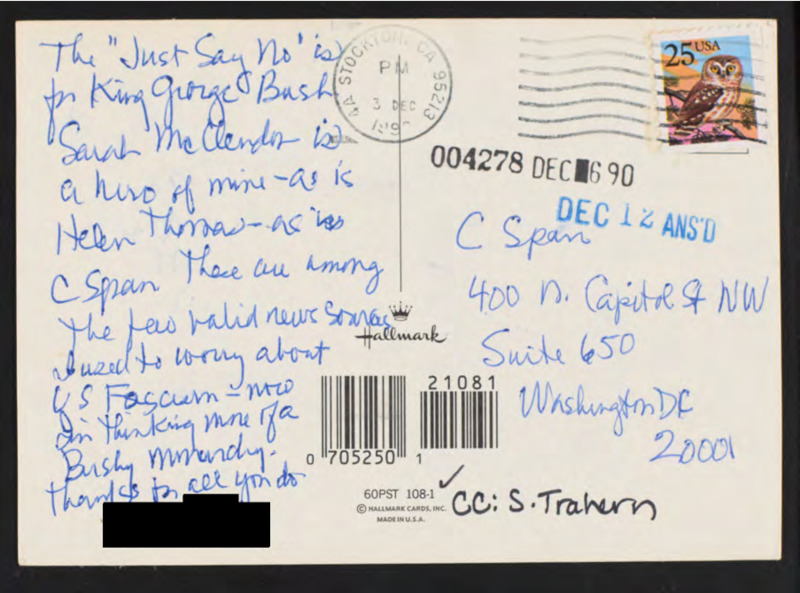 The "Just Say No" is
for King George Bush
Sarah McClendon is
a hero of mine - as is
Helen Thomas - as is
C Span These are among
the few valid news sources
I used to worry about
US Fascism - now
I'm thinking more of a
Bushy monarchy.
Thanks for all you do
STOCKTON, CA 95213
PM
3 DEC
25 USA
004278 DEC 6 90
DEC 12 ANS'D
C Span
400 N. Capitol St NW
Suite 650
Washington DC
20001
Hallmark
21081
0 705250 1
60PST 108-1
© HALLMARK CARDS, INC.
MADE IN U.S.A.
CC: S. Trahern